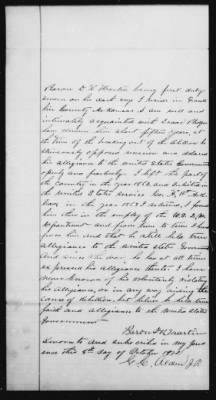 Baron D. K. Martin being first duty
sworn on his oath says I reside in
County Arkansas I am well and
intimately acquainted with Isaac
known him about fifteen years, at
the time of the breaking out of the rebellion he
opposed secession and adhered
his allegiance to the United States Government
openly and fearlessly. I left this part of
the country in the year 1862 and enlisted in
the United States service
in the year 1863 I returned, I found
him then in the employ of the U.S. Q.M.
Department and from time to time I have
seen him and that he still held true
allegiance to the United States Government
And since the war he has at all times
expressed his allegiance thereto I have
never known of his voluntarily violating
his allegiance, or in any way giving the
cause of rebellion, but believe he bore true
faith and allegiance to the United States
Government
Martin
Sworn to and subscribed in my presence
this 5th day of October
J.P.